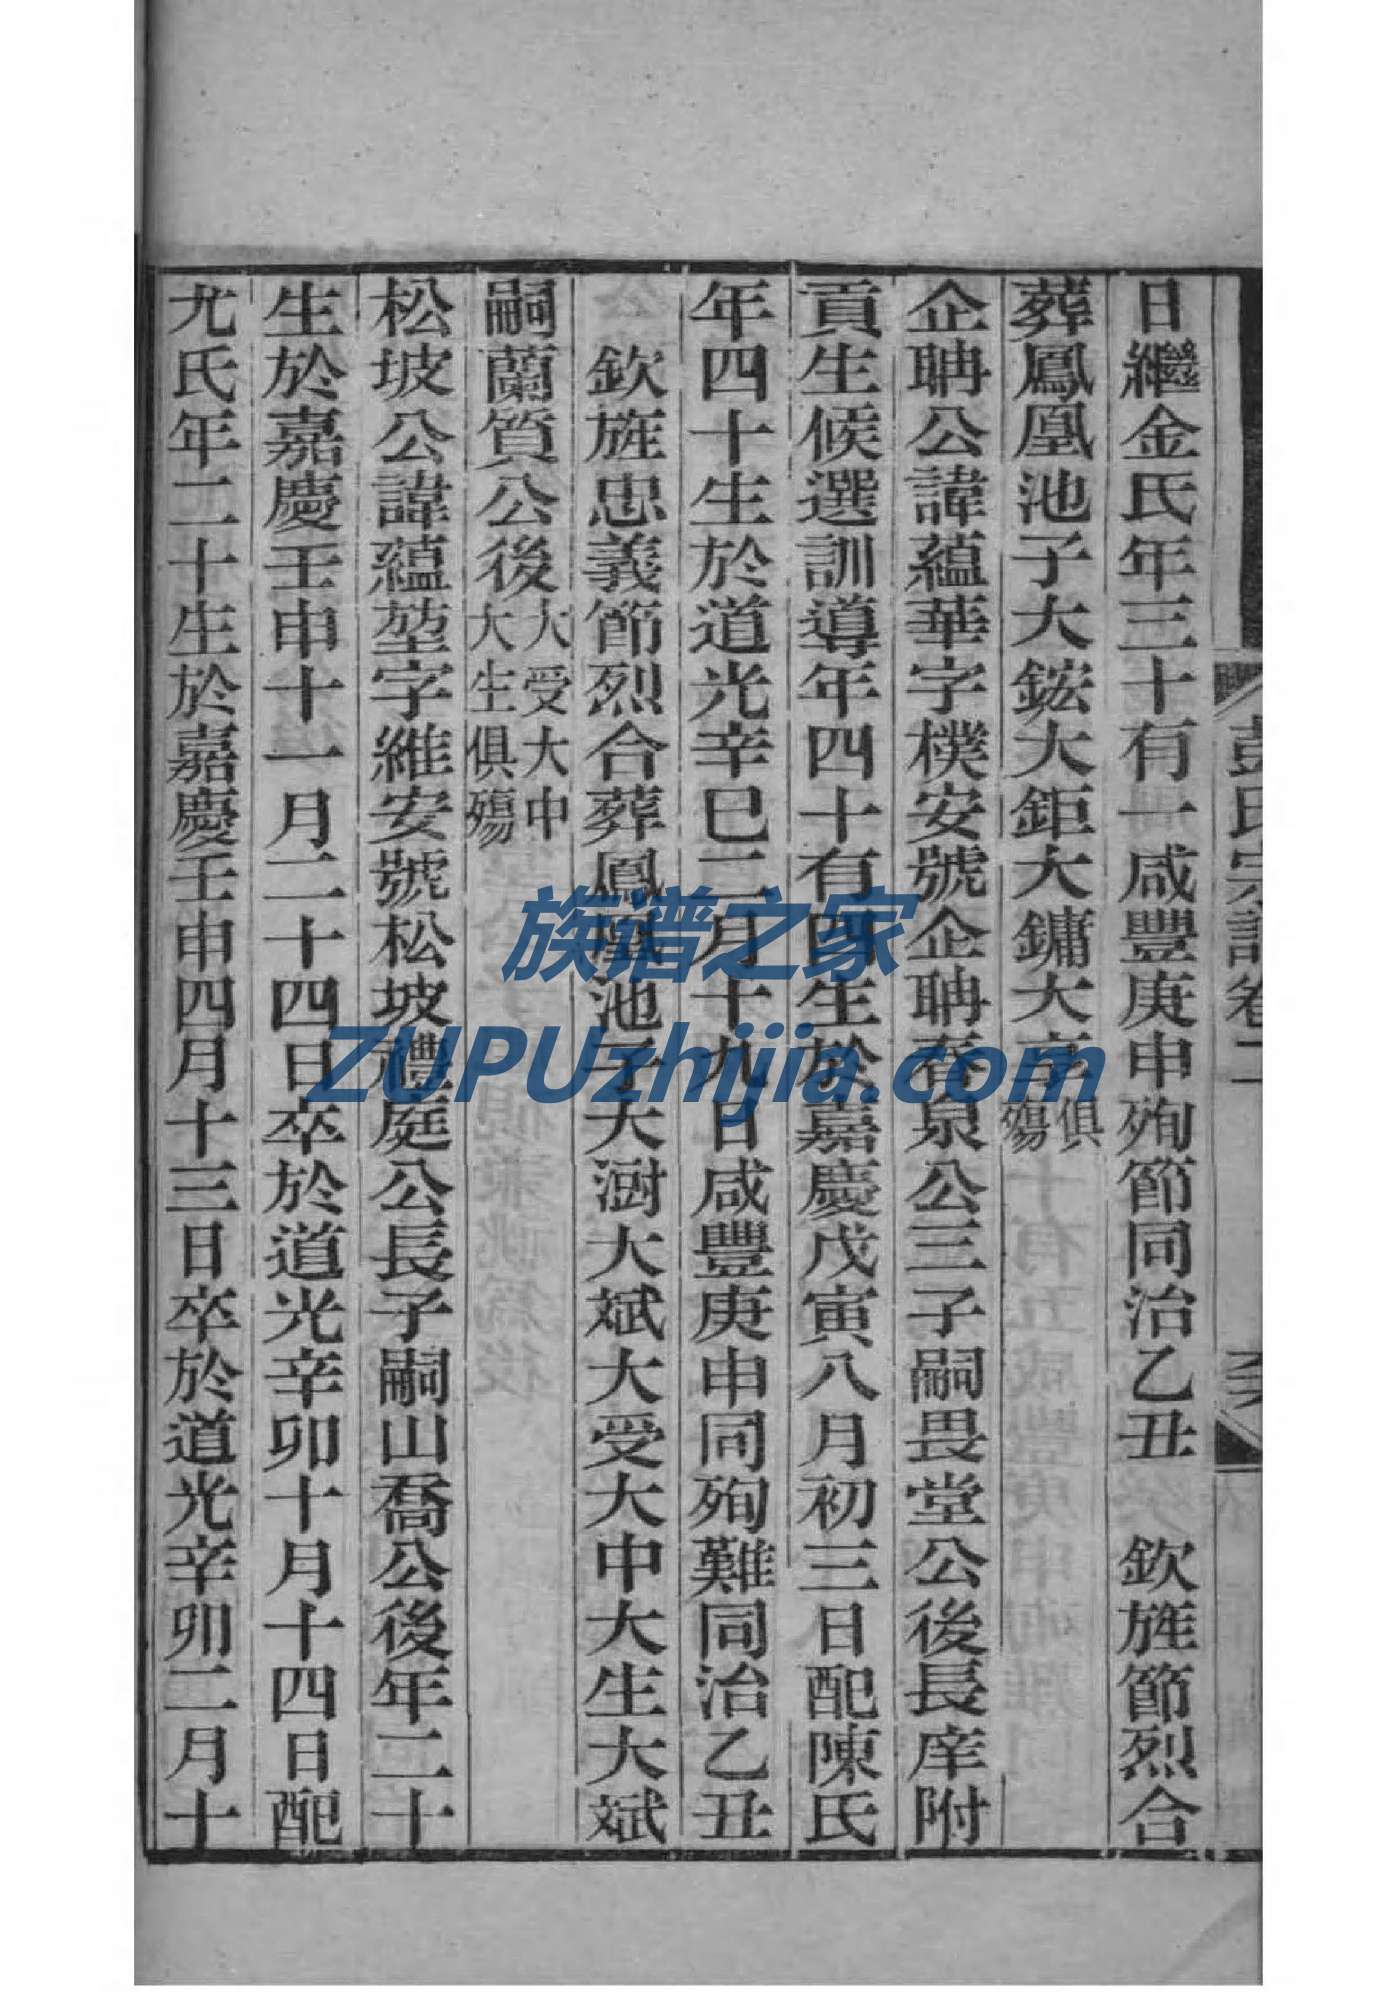 彭氏宗譜卷二
日繼金氏年三十有一咸豐庚申殉節同治乙丑 欽旌節烈合
葬鳳凰池子大鋐大鉅大鏞大亨俱殤
企聃公諱蘊華字樸安號企聃春泉公三子嗣畏堂公後長庠附
貢生候選訓導年四十有四生於嘉慶戊寅八月初三日配陳氏
年四十生於道光辛巳二月十九日咸豐庚申同殉難同治乙丑
欽旌忠義節烈合葬鳳凰池子大澍大斌大受大中大生大斌
嗣蘭質公後大受大中大生俱殤
松坡公諱蘊堃字維安號松坡禮庭公長子嗣山喬公後年二十
生於嘉慶壬申十一月二十四日卒於道光辛卯十月十四日配
尤氏年二十生於嘉慶壬申四月十三日卒於道光辛卯二月十
族谱之家
ZUPUzhijia.com